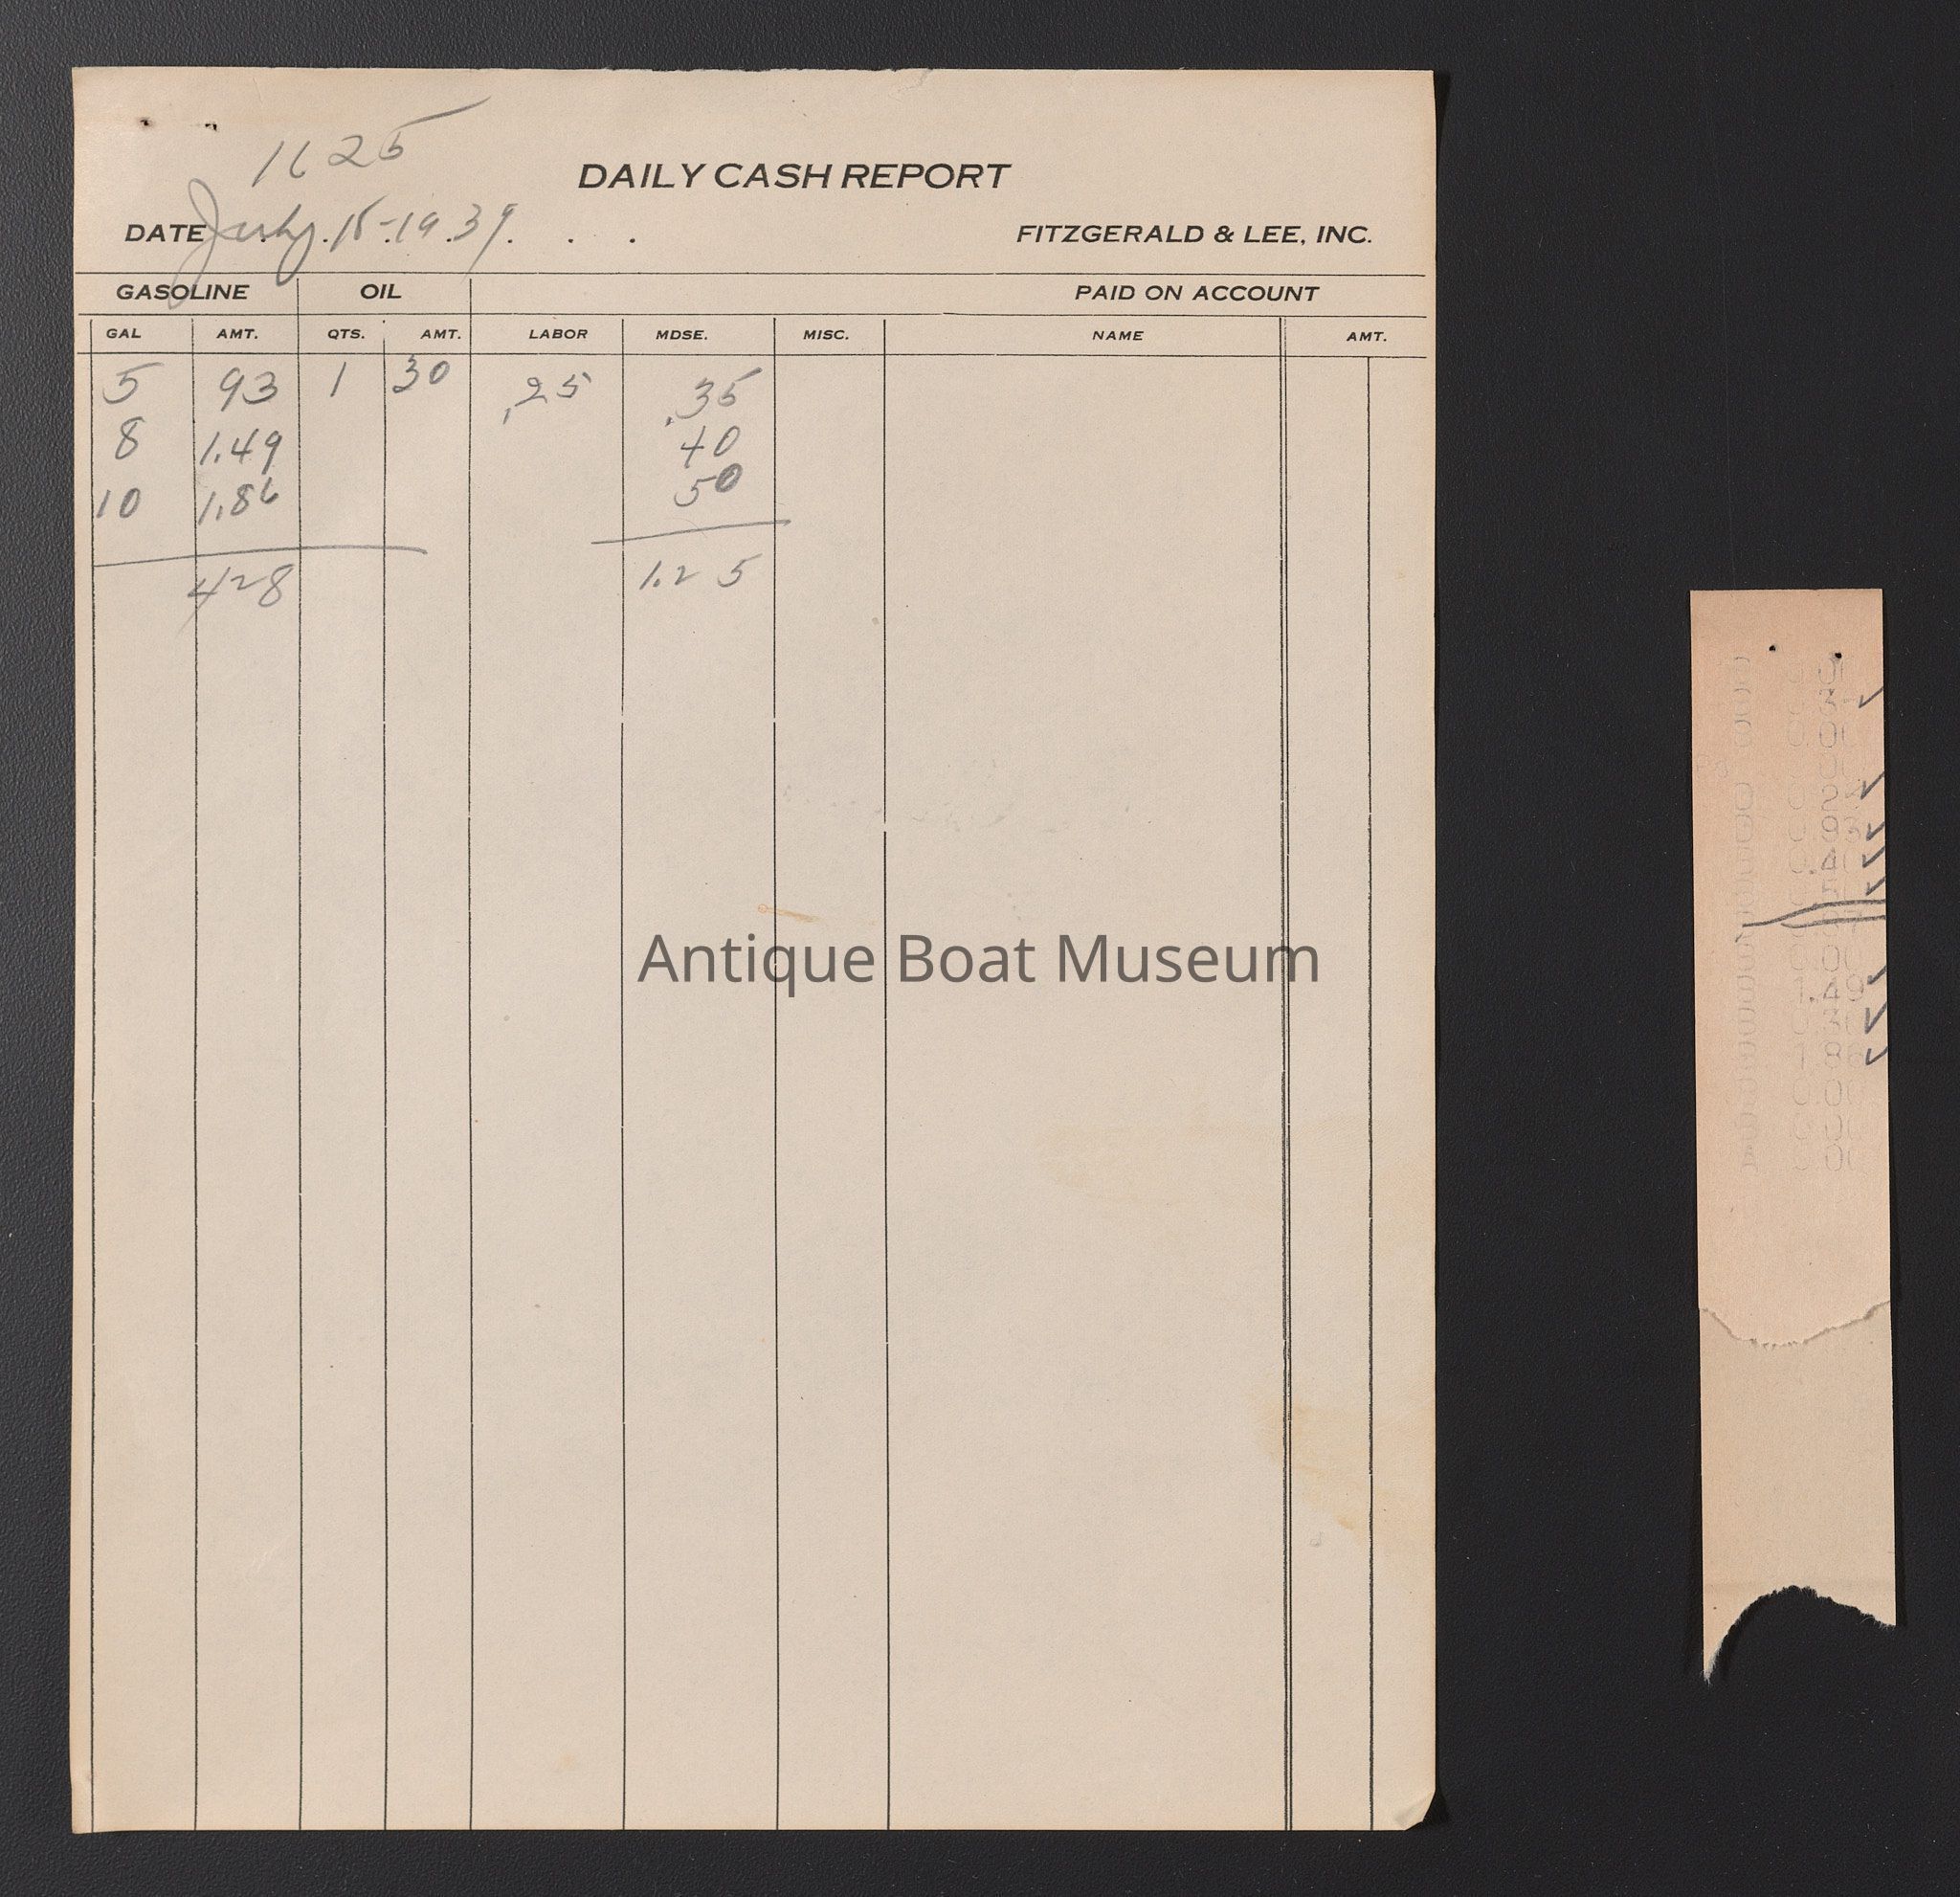 1625
DAILY CASH REPORT
DATE July 15-1939
FITZGERALD & LEE, INC.
GASOLINE OIL PAID ON ACCOUNT
GAL AMT. QTS. AMT. LABOR MDSE. MISC. NAME AMT.
5 93 1 30 .25 .35
8 1.49 40
10 1.86 50
428 1.25
Antique Boat Museum
0.00
0.93
0.40
1.49
0.30
1.86
0.00
0.00
0.00